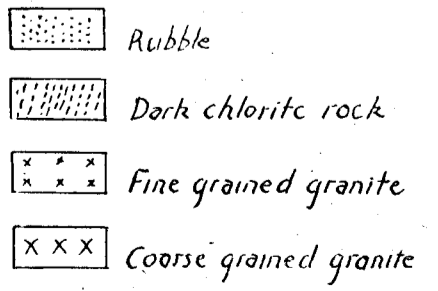 Rubble
Dark chlorite rock
Fine grained granite
Coarse grained granite